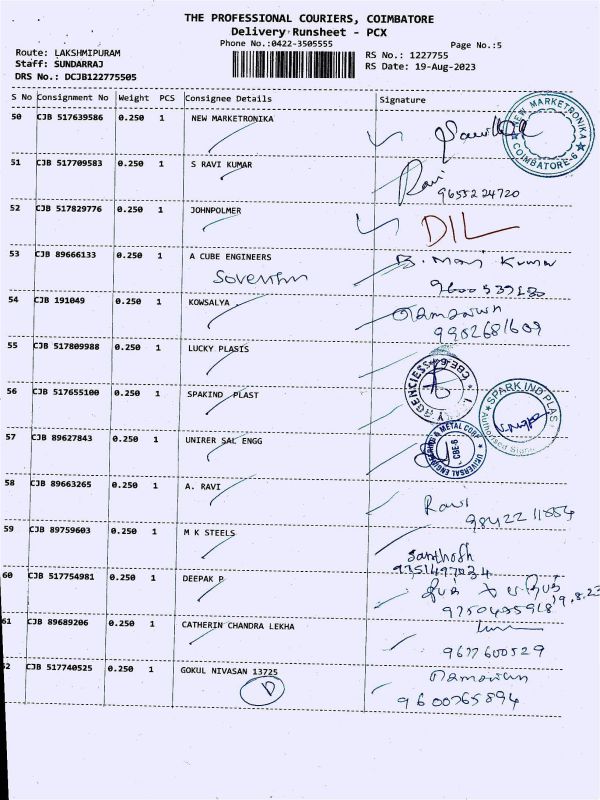 THE PROFESSIONAL COURIERS, COIMBATORE
Delivery Runsheet - PCX
Phone No.:0422-3505555
Page No.:5
Route: LAKSHMIPURAM
Staff: SUNDARRAJ
DRS No.: DCJB122775505
RS No.: 1227755
RS Date: 19-Aug-2023
S No Consignment No Weight PCS Consignee Details Signature
50 CJB 517639586 0.250 1 NEW MARKETRONIKA
NEW MARKETRONIKA
COIMBATORE-6
51 CJB 517709583 0.250 1 S RAVI KUMAR
Ravi
9655224720
52 CJB 517829776 0.250 1 JOHNPOLMER
DIL
53 CJB 89666133 0.250 1 A CUBE ENGINEERS
B. Mani Kumar
54 CJB 191049 0.250 1 KOWSALYA
9902681609
55 CJB 517809988 0.250 1 LUCKY PLASIS
56 CJB 517655100 0.250 1 SPAKIND PLAST
SPARKIND PLAS
Authorised Sign
57 CJB 89627843 0.250 1 UNIRER SAL ENGG
UNIVERSAL ENGINEERING & METAL CORP
CBE-6
58 CJB 89663265 0.250 1 A. RAVI
Ravi
59 CJB 89759603 0.250 1 M K STEELS
Santhosh
60 CJB 517754981 0.250 1 DEEPAK P
19.8.23
61 CJB 89689206 0.250 1 CATHERIN CHANDRA LEKHA
9677600529
62 CJB 517740525 0.250 1 GOKUL NIVASAN 13725
D
9600765894